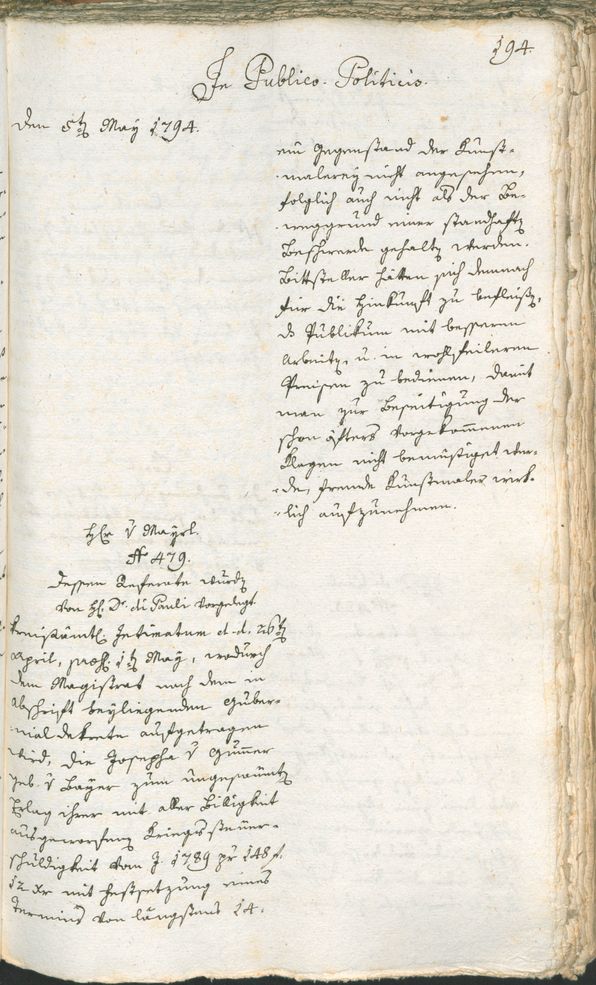 194.
In Publico. Politicis.
den 5t. May 1794.
ein Gegenstand der Kunst-
malerey nicht angesehen,
folglich auch nicht als der Be-
weggrund einer standhaft.
Beschwerde gehalt. werden.
Bittsteller hätten sich demnach
für die Hinkunft zu befleiß.,
ds Publikum mit besseren
Arbeit., u. in wohlfeileren
Preisen zu bedienen, damit
man zur Beseitigung der
schon öfters vorgekommenen
Klagen nicht bemüßiget wer-
de, fremde Kunstmaler wirk-
lich aufzunehmen.
Hr. v Mayrl.
N 479.
dessen Referate wurd.
von H. Dr. di Pauli vorgelegt.
Kreisämtl. Intimatum d. d. 26t.
April, prs. 1t. May, wodurch
dem Magistrat nach dem in
Abschrift beyliegenden Guber-
nialdekrete aufgetragen
wird, die Josepha v Gumer
geb. v Bayer zum ungesaumt.
Erlag ihrer mit aller Billigkeit
ausgeworfenen Kriegssteuer-
schuldigkeit vom J. 1789 pr 148 f.
12 xr mit Festsetzung eines
Termins von längstens 14.